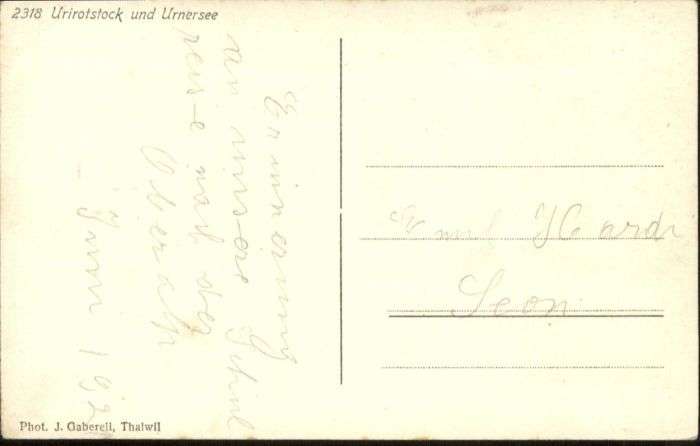 2318 Urirotstock und Urnersee
Erinnerung
an unsere Schul
reise nach der
Oberalp
Juni 192
Seon
Phot. J. Gaberell, Thalwil